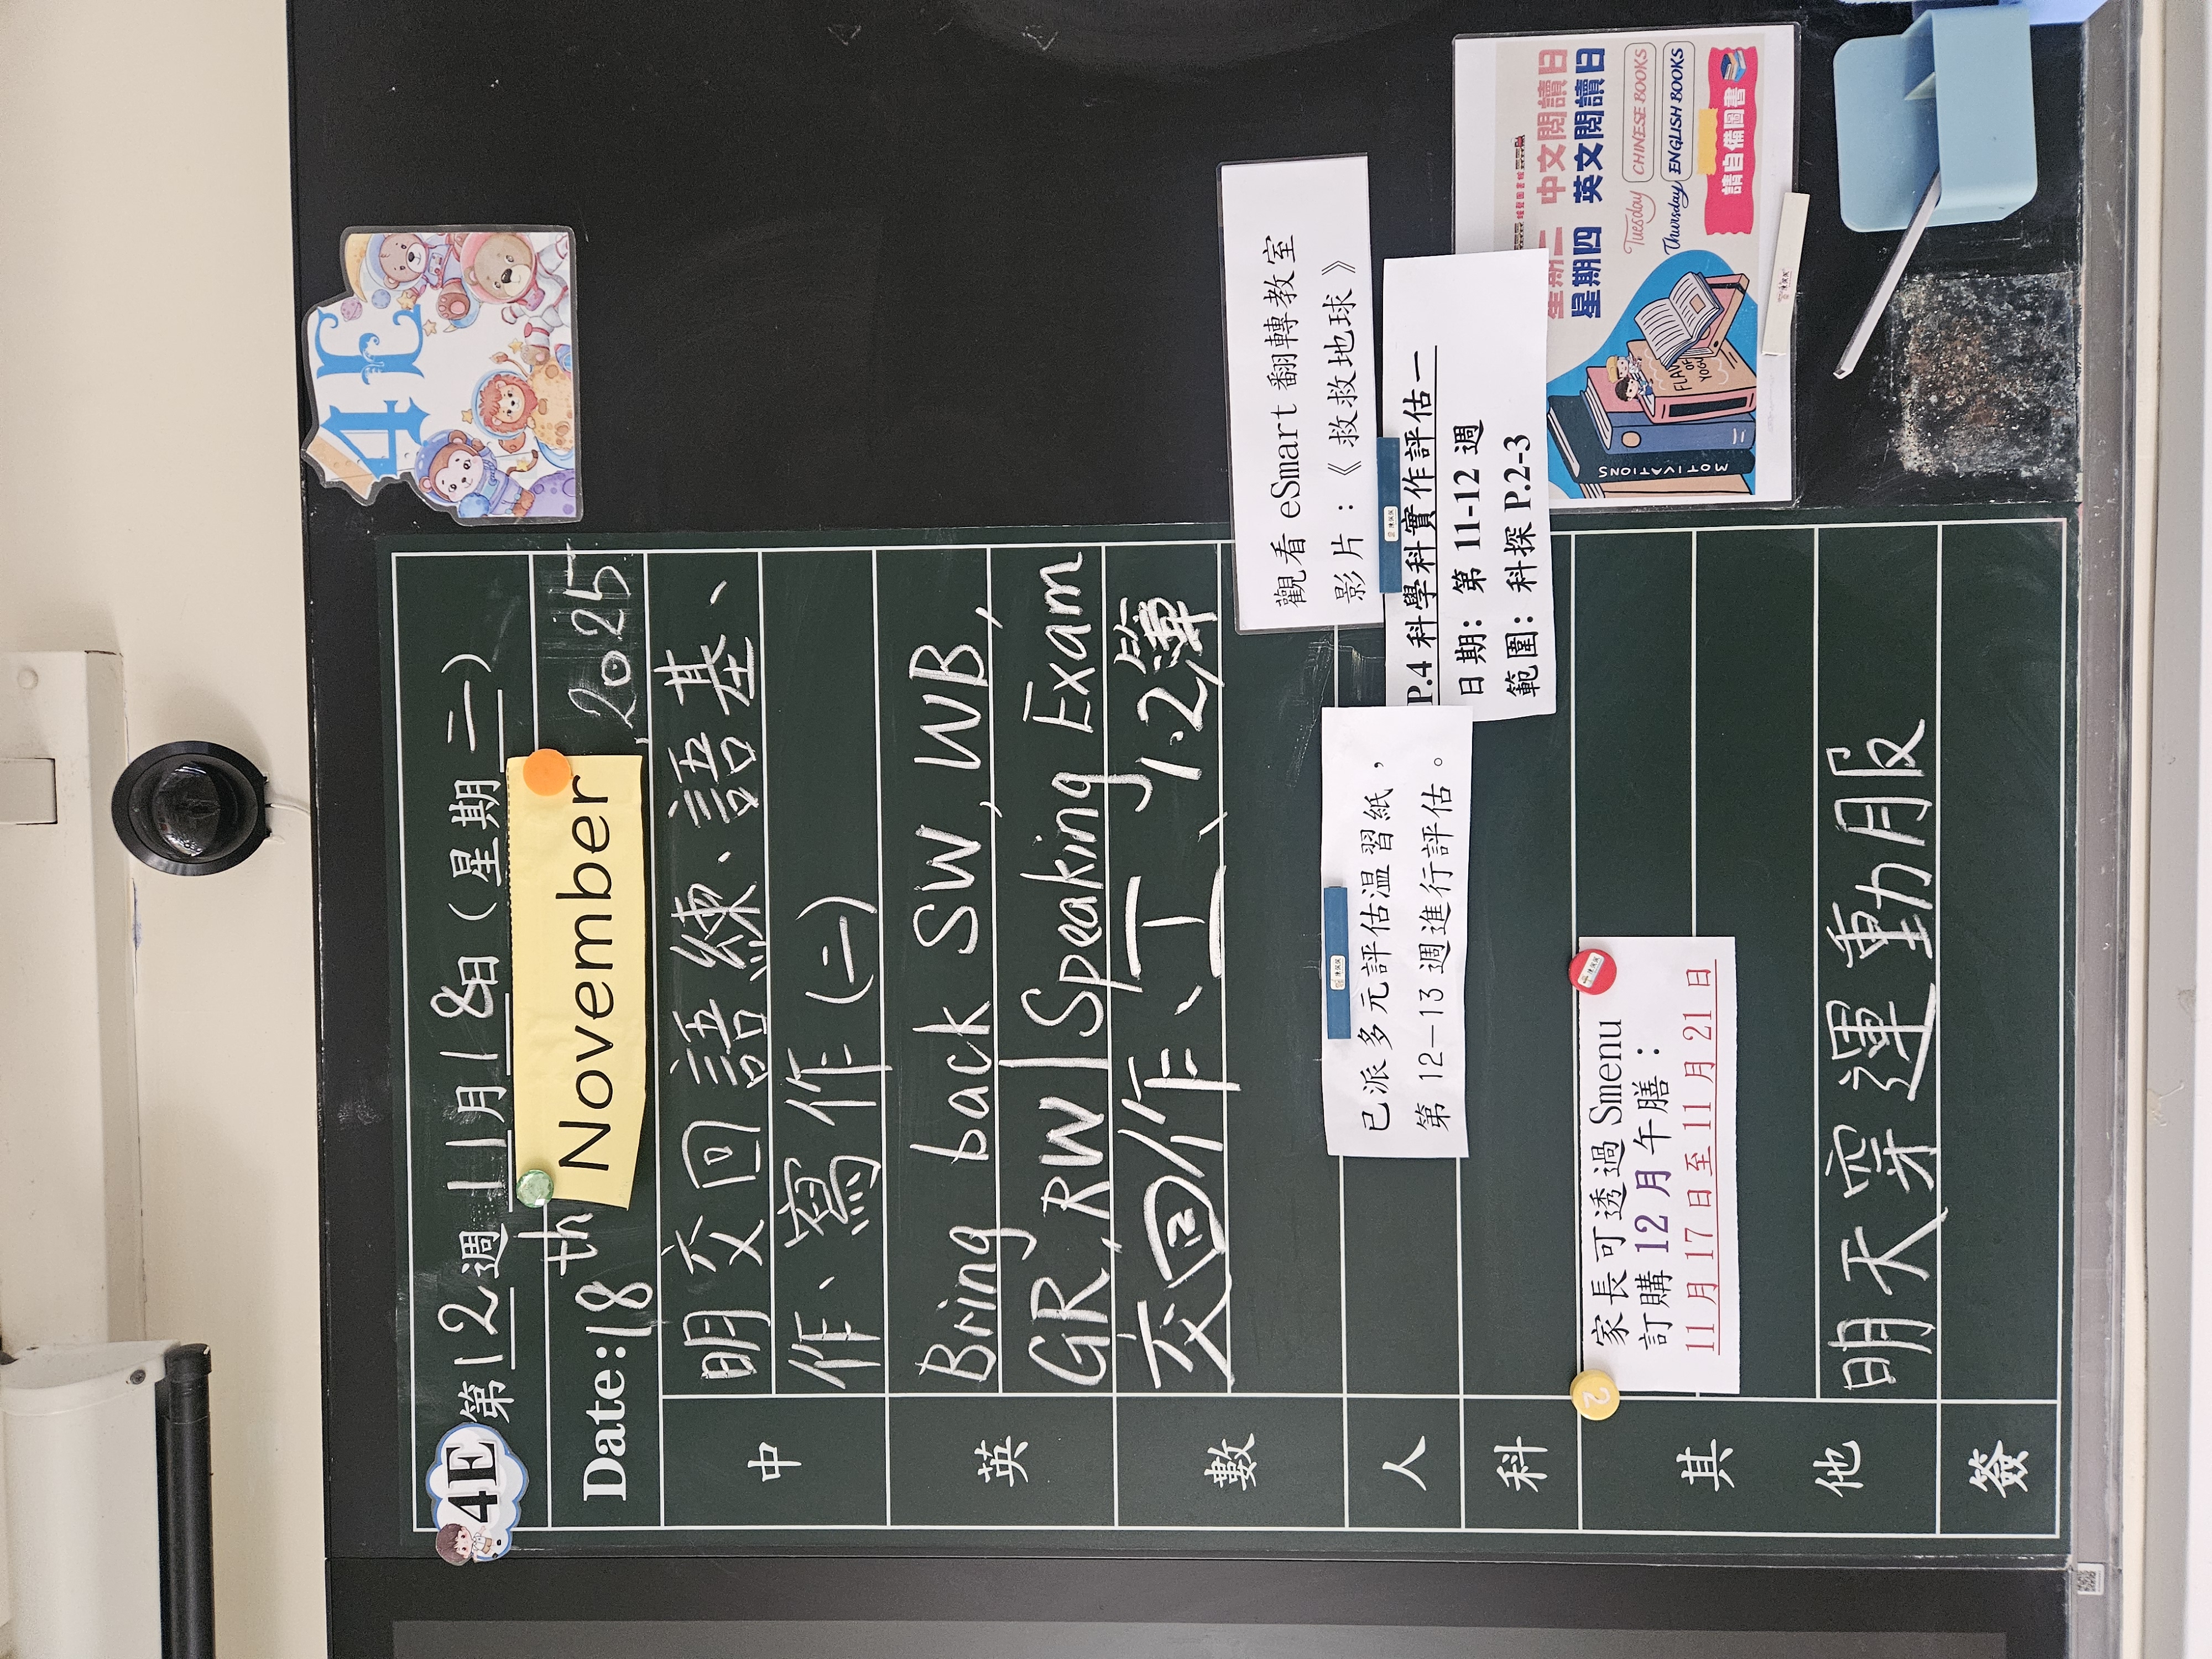 4E
4E
第12週 11月18日(星期二)
Date:18th November, 2025
中
明交回語練、語基、
作、寫作(二)
英
Bring back SW, WB,
GR, RW | Speaking Exam
數
交回作、工、1.2簿
人
已派多元評估溫習紙,
第 12-13 週進行評估。
科
觀看 eSmart 翻轉教室
影片:《 救救地球》
P.4 科學科實作評估一
日期: 第 11-12 週
範圍: 科探 P.2-3
其
他
家長可透過 Smenu
訂購 12 月午膳:
11 月 17 日至 11 月 21 日
2
明天穿運動服
簽
星期二 中文閱讀日
星期四 英文閱讀日
Tuesday CHINESE BOOKS
Thursday ENGLISH BOOKS
請自備圖書
MOTIVATIONS